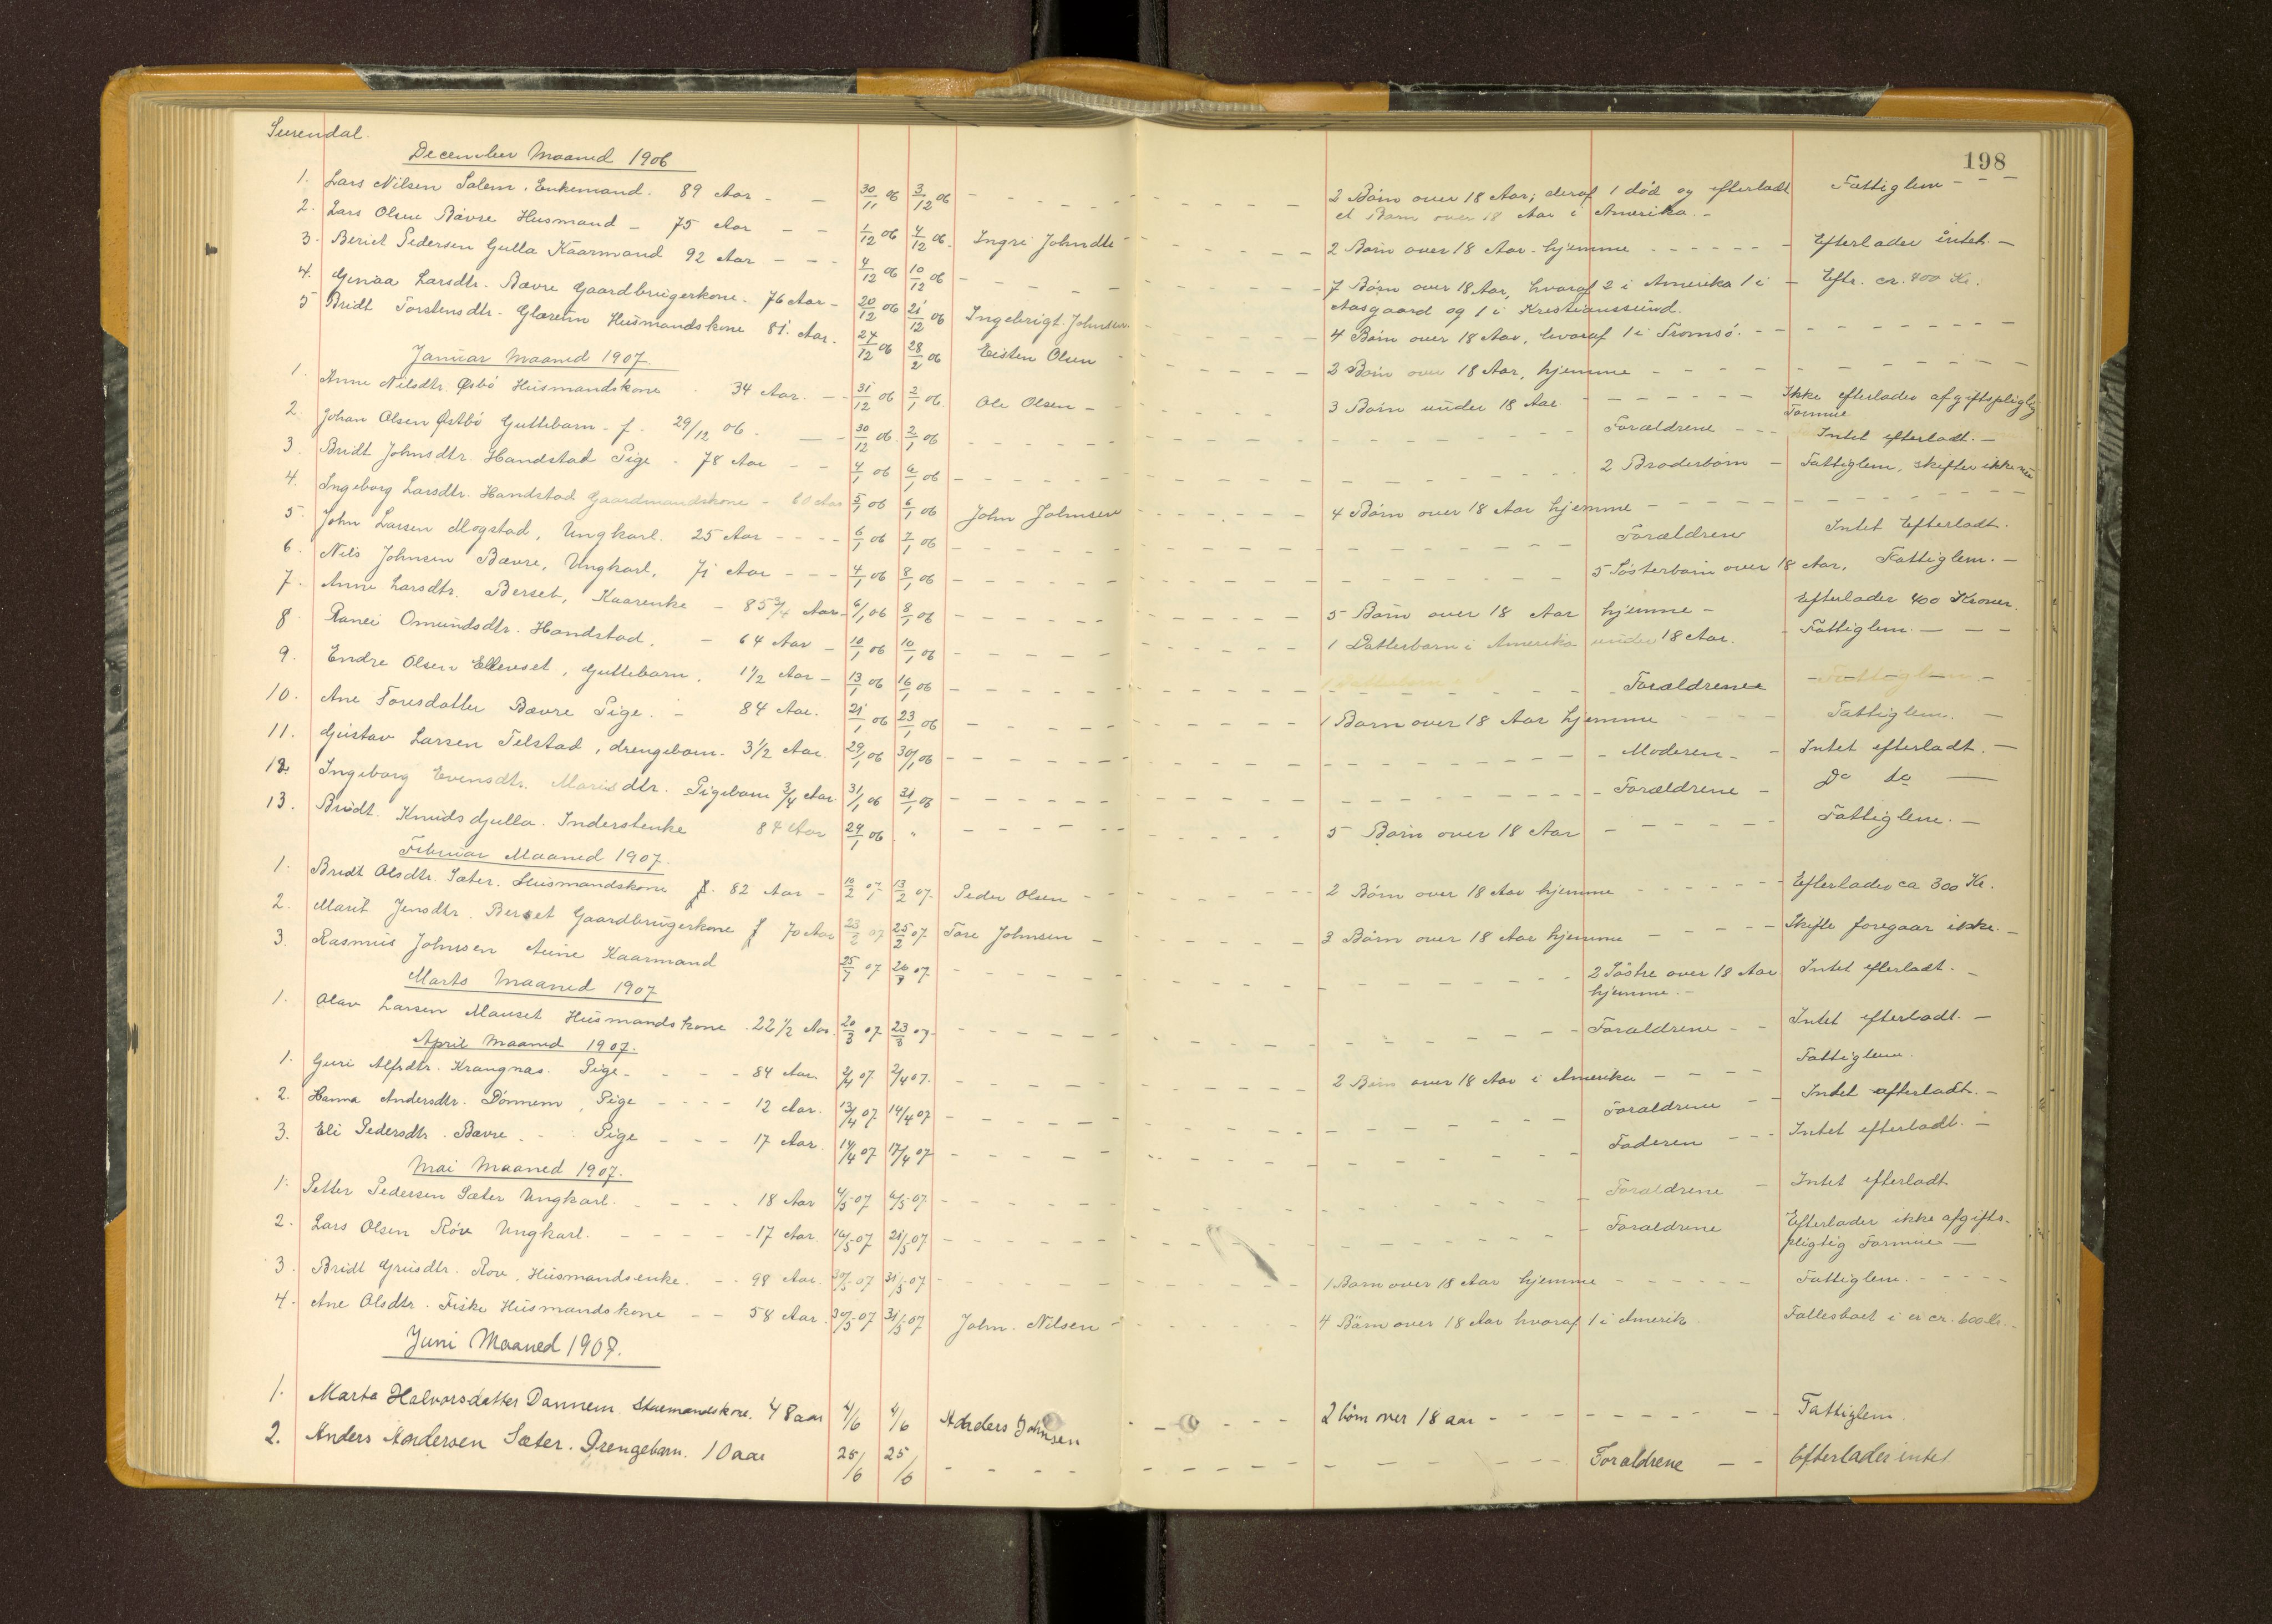 Surendal.
198
December Maaned 1906
1. Lars Nilsen Salem. Enkemand. 89 Aar - - 30/11 06 3/12 06 - 2 Börn over 18 Aar; deraf 1 död og efterladt Fattiglem - - -
et Barn over 18 Aar i Amerika. -
2. Lars Olsen Bävre Husmand - 75 Aar - - 1/12 06 4/12 06. Ingri Johndtr - 2 Börn over 18 Aar. hjemme - Efterlader intet. -
3. Beriet Pedersen Gulla Kaarmand 92 Aar - - - 4/12 06 10/12 06 - 7 Börn over 18 Aar, hvoraf 2 i Amerika 1 i - Eftr. cr. 400 Kr.
Aasgaard og 1 i Kristianssund.
4. Larsdtr. Bævre Gaardbrugerkone. 76 Aar - 20/12 06 21/12 06 Ingebrigt Johnsen - 4 Börn over 18 Aar, hvoraf 1 i Tromsö. - -
5 Bridt Torstensdtr. Glærem Husmandskone 81. Aar. 27/12 06 28/2 06 Eisten Olsen - 2 Börn over 18 Aar, hjemme - - -
Januar Maaned 1907.
1. Anne Nilsdtr. Øsbö Husmandskone 34 Aar. - - 31/12 06 2/1 06. Ole Olsen - 3 Börn under 18 Aar. - Ikke efterlader afgiftspligtig
Formue
2. Johan Olsen Østbö Guttebarn - f. 29/12 06. - - 30/12 06. 2/1 06 - Forældrene - - - Intet efterladt. -
3. Bridt Johnsdtr. Handstad Pige. 78 Aar - - 4/1 06 6/1 06 - 2 Broderbörn - Fattiglem, skifter ikke
4. Ingeborg Larsdtr. Handstad Gaardmandskone - 60 Aar 5/1 06 6/1 06 John Johnsen - 4 Börn over 18 Aar hjemme - - -
5. John Larsen Mogstad, Ungkarl. 25 Aar - - - - 6/1 06 7/1 06 - Forældren Intet Efterladt.
6. Nils Johnsen Bævre, Ungkarl, 71 Aar - - - 4/1 06 8/1 06 - 5 Sösterbörn over 18 Aar, Fattiglem. -
7. Anne Larsdtr. Berset, Kaarenke - 85 3/4 Aar - 6/1 06 8/1 06 - 5 Börn over 18 Aar hjemme - Efterlader 400 Kroner.
8. Ranei Omundsdtr. Handstad. - 64 Aar - 10/1 06 10/1 06 - 1 Datterbarn i Amerika under 18 Aar. - Fattiglem. - - -
9. Endre Olsen Ellevset, Guttebarn. 1 1/2 Aar - 13/1 06 16/1 06 - Forældrene - - -
10. Ane Toresdatter Bævre Pige. - 84 Aar. 21/1 06 23/1 06 - 1 Barn over 18 Aar hjemme - Fattiglem. -
11. Gustav Larsen Telstad, drengebarn - 3 1/2 Aar. 29/1 06 30/1 06 - Moderen - - Intet efterladt. -
12. Ingeborg Evensdtr. dtr. Pigebarn 3/4 Aar 31/1 06 31/1 06 - Forældrene - Do do -
13. Bridt. Knuds Gulla. Inderstenke 84 Aar 24/1 06 " - 5 Börn over 18 Aar - Fattiglem. -
Februar Maaned 1907.
1. Bridt Olsdtr. Sæter. Husmandskone f. 82 Aar - 10/2 07 13/2 07. Peder Olsen - 2 Börn over 18 Aar hjemme - Efterlader ca 300 Kr.
2. Marit Jensdtr. Berset Gaardbrugerkone f 70 Aar 23/2 07 25/2 07 Tore Johnsen - 3 Börn over 18 Aar hjemme - Skifte foregaar ikke. -
3. Rasmus Johnsen Aune Kaarmand 25/7 07 26/7 07. - 2 Söstre over 18 Aar Intet efterladt. -
hjemme. -
Marts Maaned 1907
1. Olav Larsen Mauset Husmandskone . 22 1/2 Aar. 20/3 07 23/3 07 - Forældrene - - Intet efterladt. -
April Maaned 1907.
1. Guri Alfsdtr. Krangnæs. Pige - - - 84 Aar 2/4 07. 2/4 07. - 2 Börn over 18 Aar i Amerika - - - Fattiglem.
2. Hanna Andersdtr. Dönnem, Pige - - - - 12 Aar. 13/4 07 14/4 07 - Forældrene - - Intet efterladt. -
3. Eli Pedersdtr. Bævre. - Pige - - - 17 Aar. 14/4 07 17/4 07 - Faderen - - - Intet efterladt. -
Mai Maaned 1907.
1. Petter Pedersen Sæter Ungkarl. - - - 18 Aar 4/5 07 6/5 07. - Forældrene - Intet efterladt
2. Lars Olsen Röv Ungkarl. - - - - 17 Aar. 16/5 07 21/5 07 - Forældrene Efterlader ikke afgifts-
pligtig Formue -
3. Bridt Grusdtr. Rov, Husmandsenke. - - 98 Aar. 30/5 07 31/5 07 - 1 Barn over 18 Aar hjemme - Fattiglem. - - -
4. Ane Olsdtr. Fiske Husmandskone - - 58 Aar. 30/5 07 31/5 07 John. Nilsen - 4 Börn over 18 Aar hvoraf 1 i Amerik Fallesboet i er cr. 600 Kr.
Juni Maaned 1907.
1. Marta Halvorsdatter Dannem 48 aar 4/6 4/6 Anders Johnsen - 2 börn over 18 aar - Fattiglem.
2. Anders Andersen Sæter. Drengebarn. 10 aar 25/6 25/6 - Foraldrene - - Efterlader intet